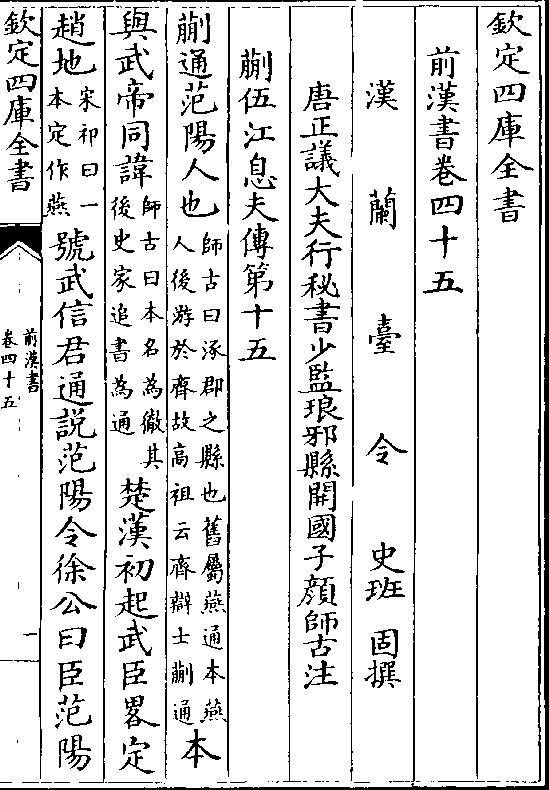 欽定四庫全書
前漢書卷四十五
漢蘭臺令史班固撰
唐正議大夫行秘書少監琅邪縣開國子顔師古注
蒯伍江息夫傳第十五
蒯通范陽人也師古曰涿郡之縣也舊屬燕通本燕人後游於齊故高祖云齊辯士蒯通本
與武帝同諱師古曰本名為徹其後史家追書為通楚漢初起武臣畧定
趙地宋祁曰一本定作燕號武信君通説范陽令徐公曰臣范陽
欽定四庫全書
前漢書
卷四十五
一